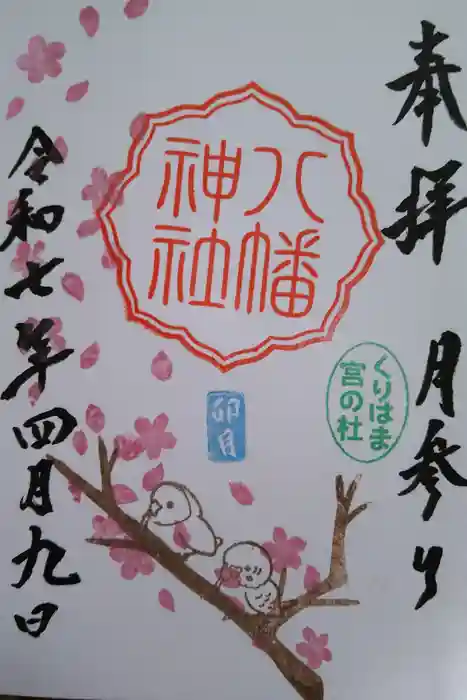 奉拝
月参り
八幡
神社
くりはま
宮の杜
卯月
令和七年四月九日